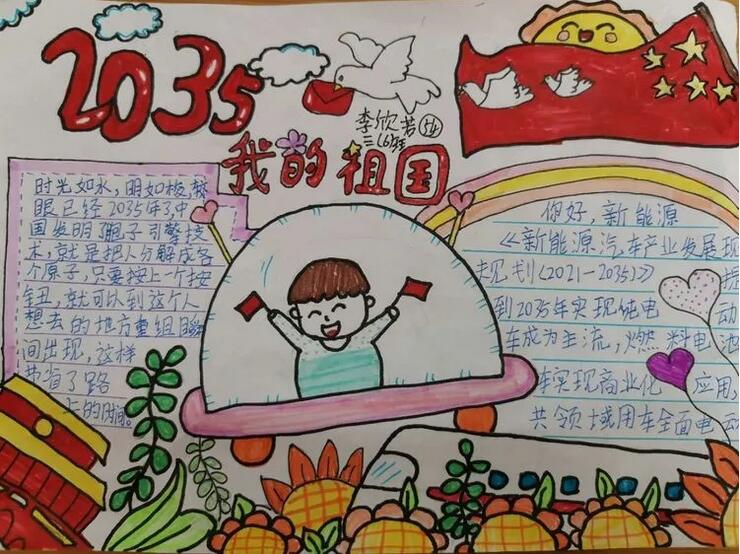 2035
李欣芳 54
三(6)班
我的祖国
时光如水,明如梭,转
眼已经2035年了,中
国发明了胞子引擎技
术,就是把人分解成各
个原子,只要按上一个按
钮,就可以到这个人
想去的地方重组目
间出现,这样
节省了路
上的时间。
你好,新能源
《新能源汽车产业发展现
规划(2021-2035)》 提
到2035年实现纯电 动
车成为主流,燃料电 池
车实现商业化 应用,
共领域用车全面电 动